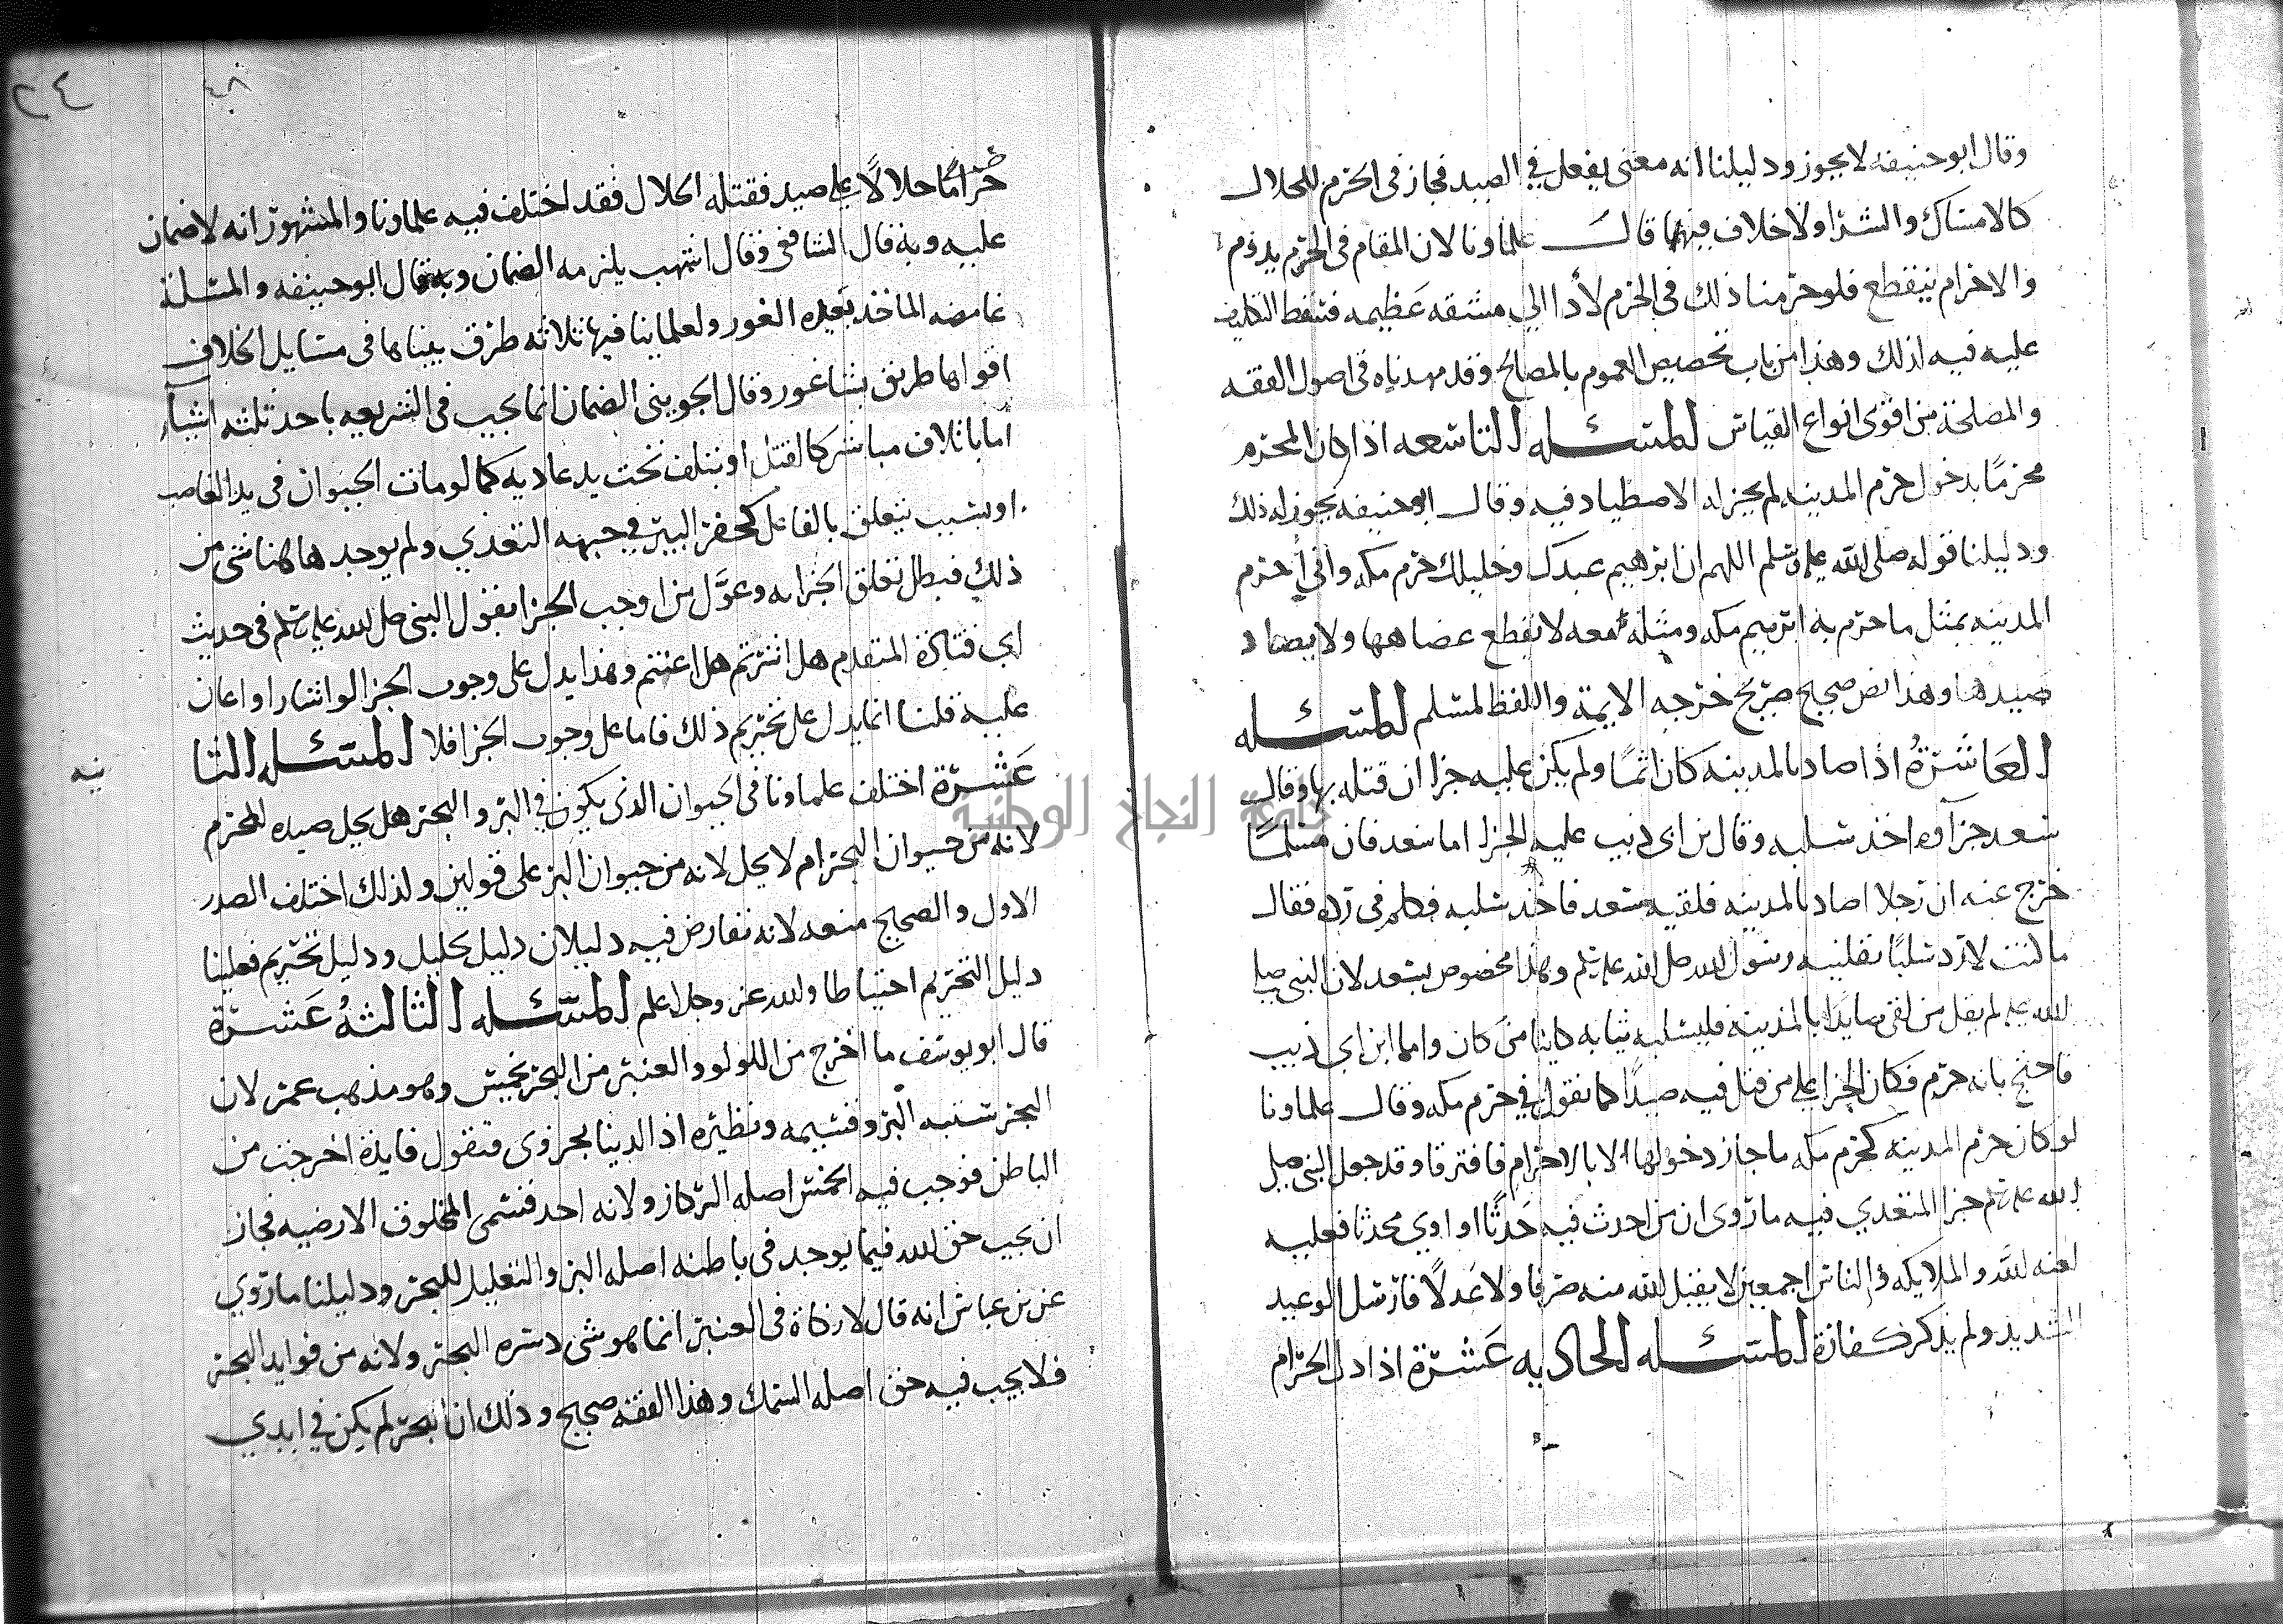 وقال ابو حنيفه لا يجوز ودليلنا انه معنى يفعل في الصيد فجاز في الحرم للحلال
كالامساك والشرا ولا خلاف فيها قال علماونا لان المقام في الحرم يدوم
والاحرام ينقطع فلو حرمنا ذلك في الحرم لأدا الي مشقه عظيمه فسقط التكليف
عليه فيه لذلك وهذا من باب تخصيص العموم بالمصالح وقد مهدناه في اصول الفقه
والمصلحة من اقوى انواع القياس المسئله التاسعه اذا كان المحرم
محرمًا بدخول حرم المدينه لم يجز له الاصطياد فيه وقال ابو حنيفه يجوز له ذلك
ودليلنا قوله صلى الله عليه وسلم اللهم ان ابرهيم عبدك وخليلك حرم مكه واني أحرم
المدينه بمثل ما حرم به ابرهيم مكه ومثله معه لا يقطع عضاهها ولا يصاد
صيدها وهذا نص صحيح صريح خرجه الايمة واللفظ لمسلم المسئله
العَاشرَةُ اذا صاد بالمدينه كان اثمًا ولم يكن عليه جزا ان قتله بها وقال
سعد جزآوه اخذ سلبه وقال بن ابي ذيب عليه الجزا اما سعد فان مسلمًا
خرج عنه ان رجلا اصاد بالمدينه فلقيه سعد فاخذ سلبه فكلم في رده فقال
ما كنت لارد سلبًا نفلنيه رسول الله صلى الله عليه وسلم وهذا مخصوص بسعد لان النبي صلى
الله عليه لم يقل من لقي صايدًا بالمدينه فليسلبه ثيابه كاينا من كان واما ابن ابي ذيب
فاحتج بانه حرم فكان الجزا علي من قتل فيه صيدًا كما نقول في حرم مكه وقال علماونا
لو كان حرم المدينه كحرم مكه ما جاز دخولها الا بالاحرام فافترقا وقد جعل النبي صلى
الله عليه وسلم جزا المتعدي فيه ما روى ان من احدث فيه حَدثًا او اوي محدثا فعليه
لعنه الله والملايكه والناس اجمعين لا يقبل الله منه صرفا ولا عَدلًا فارسل الوعيد
الشديد ولم يذكر كفارة المسئله الحاديه عَشرَة اذا دل الحرام
حرامًا حلالًا علي صيد فقتله الحلال فقد اختلف فيه علماونا والمشهور انه لا ضمان
عليه وبه قال الشافعي وقال اشهب يلزمه الضمان وبه قال ابو حنيفه والمسلة
غامضه الماخذ بعيده الغور ولعلماينا فيها ثلاثه طرق بيناها في مسايل الخلاف
اقواها طريق بساغور وقال الجويني الضمان انما يجب في الشريعه باحد ثلثه اشيآء
اما باتلاف مباشر كالقتل او بتلف تحت يد عاديه كما لو مات الحيوان في يد الغاصب
او بسبب يتعلق بالفاعل كحفر البير في جبهه التعدي ولم يوجد هاهنا شي من
ذلك فبطل تعلق الجزا به وعوَّل من اوجب الجزا بقول النبي صلى الله عليه وسلم في حديث
ابي قتادة المتقدم هل اشرتم هل اعنتم وهذا يدل على وجوب الجزا لو اشار او اعان
عليه قلنا انما يدل علي تحريم ذلك فاما على وجوب الجزا فلا المسئله الثا
نيه
عَشرَة اختلف علماونا في الحيوان الذي يكون في البر والبحر هل يحل صيده للمحرم
لانه من حيوان البحر ام لا يحل لانه من حيوان البر على قولين ولذلك اختلف الصدر
الاول والصحيح منعه لانه تعارض فيه دليلان دليل تحليل ودليل تحريم فغلبنا
دليل التحريم احتياطا والله عز وجل اعلم المسئله الثالثهُ عَشرَة
قال ابو يوسف ما اخرج من اللولو والعنبر من البحر يخمس وهو مذهب عمر لان
البحر شبه البر وقسيمه ونظيره اذ الدنيا بحر وبر فنقول فايدة اخرجت من
الباطن فوجب فيه الخمس اصله الركاز ولانه احد قسمي المخلوق الارضيه فجاز
ان يجب حق الله فيما يوجد في باطنه اصله البر والتعليل للبحر ودليلنا ما روي
عن بن عباس انه قال لا زكاة في العنبر انما هو شي دسره البحر ولانه من فوايد البحر
فلا يجب فيه حق اصله السمك وهذا الفقه صحيح وذلك ان البحر لم يكن في ايدي
جامعة النجاح الوطنية
٢٤
٤٨